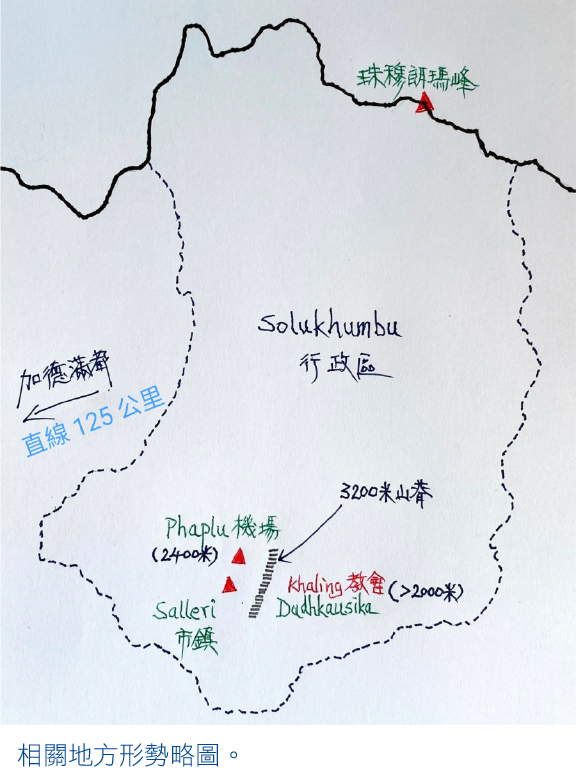 珠穆朗瑪峰
Solukhumbu
行政區
加德滿都
直線 125 公里
3200米山脊
Phaplu 機場
(2400米)
Khaling 教會 (>2000米)
Salleri
市鎮
Dudhkausika
相關地方形勢略圖。